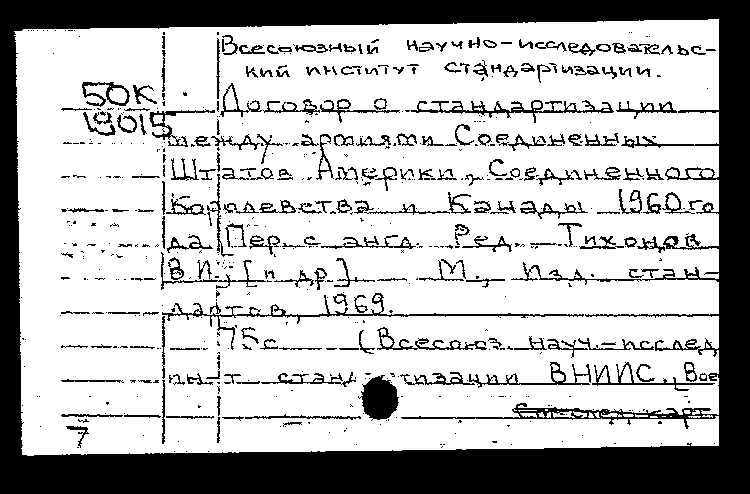 Всесоюзный научно-исследовательс-
кий институт стандартизации.
50К
19015
Договор о стандартизации
между армиями Соединенных
Штатов Америки, Соединенного
Королевства и Канады 1960 го
да [Пер. с англ. Ред. Тихонов
В.И., [и др]. М., Изд. стан-
дартов, 1969.
75с (Всесоюз. науч.-исслед
ин-т стандартизации ВНИИС.
См. след. карт.
7